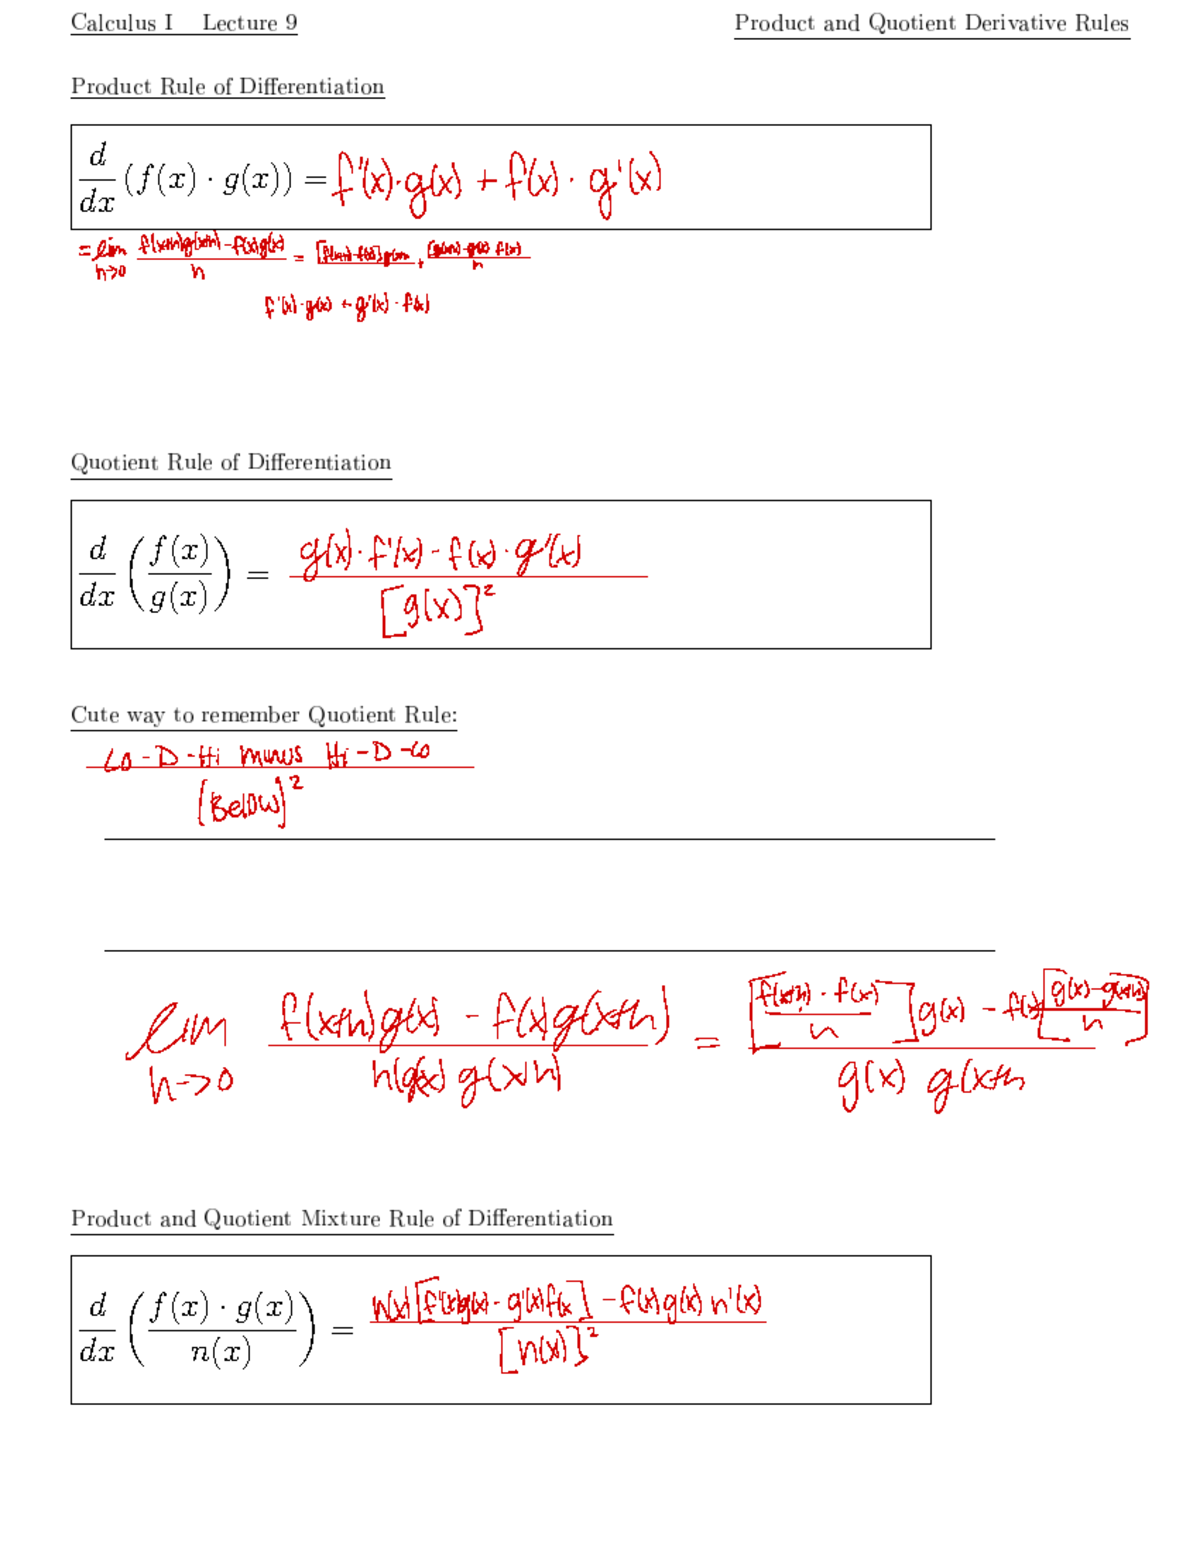 Calculus I Lecture 9 Product and Quotient Derivative Rules
Product Rule of Differentiation
d/dx (f(x) · g(x)) = f'(x)·g(x) + f(x) · g'(x)
= lim h→0 f(x+h)g(x+h) - f(x)g(x) / h = [f(x+h)-f(x)]g(x) + [g(x+h)-g(x)] f(x) / h
f'(x)·g(x) + g'(x)·f(x)
Quotient Rule of Differentiation
d/dx (f(x)/g(x)) = g(x)·f'(x) - f(x)·g'(x) / [g(x)]²
Cute way to remember Quotient Rule:
Lo-D-Hi minus Hi-D-Lo
[Below]²
lim h→0 f(x+h)g(x) - f(x)g(x+h) / h(g(x) g(x+h) = [f(x+h) - f(x) / h] g(x) - f(x) [g(x)-g(x+h) / h] / g(x) g(x+h
Product and Quotient Mixture Rule of Differentiation
d/dx (f(x) · g(x) / n(x)) = n(x)[f'(x)g(x) - g'(x)f(x] - f(x)g(x) n'(x) / [n(x)]²